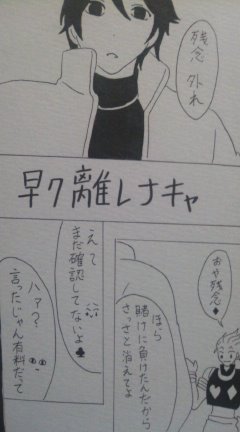 残念
外れ
早ク離レナキャ
おや残念♦
ほら
賭けに負けたんだから
さっさと消えてよ
えて
まだ確認してないよ♣
ハァ?
言ったじゃん有料だって